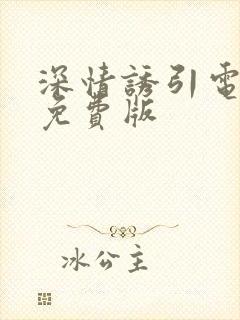 深情誘引電
免費版
冰公主